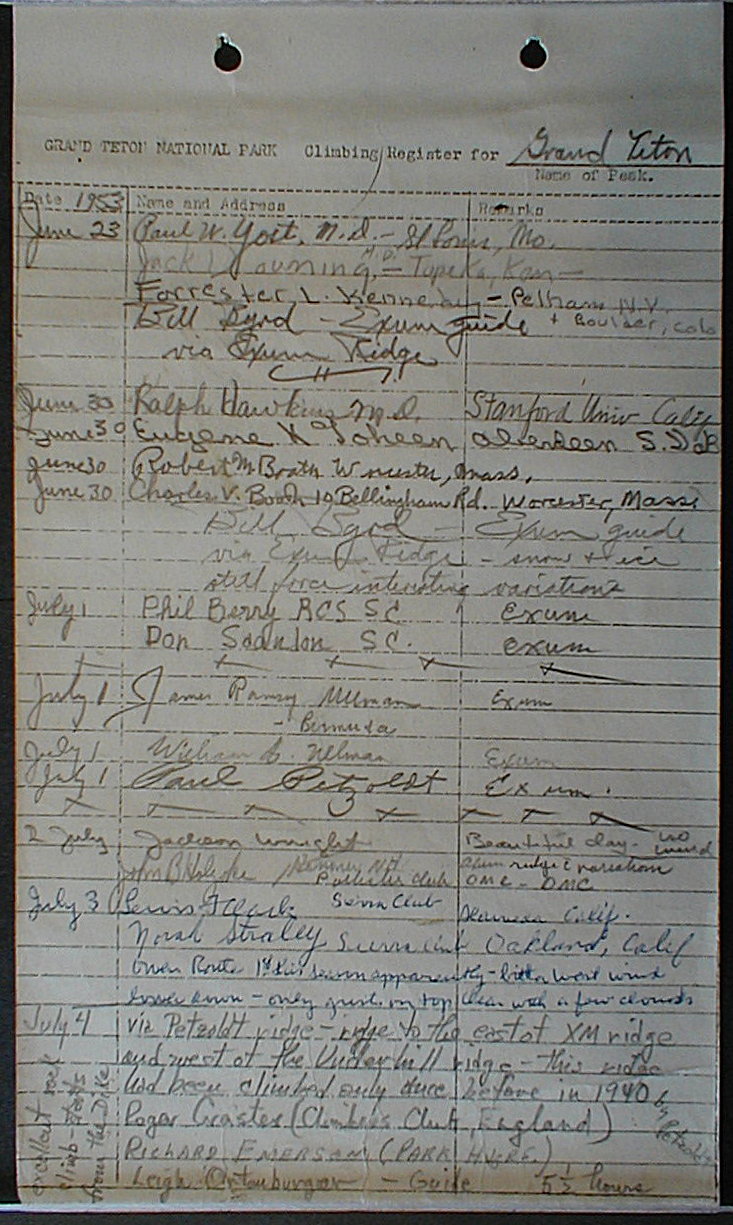 GRAND TETON NATIONAL PARK Climbing Register for Grand Teton
Name of Peak.
Date 1953 Name and Address Remarks
June 23 Paul W. Yost, M.d. - St Louis, Mo.
Jack M.D. - Topeka, Kan -
Forrester L. - Pelham N.Y.
Bill Byrd - Exum guide + Boulder, Colo
via Exum Ridge
June 30 Ralph Hawkins M.D. Stanford Univ Calif
June 30 Eugene K Aberdeen S. Dak
June 30 Robert M Booth Worcester, Mass.
June 30 Charles V. Booth 10 Bellingham Rd. Worcester, Mass
Bill Byrd - Exum guide
via Exum Ridge - snow + ice
still force interesting variations
July 1 Phil Berry RCS SC Exum
Don Scanlon SC. exum
July 1 James Ramsey Ullman Exum
- Bermuda
July 1 William Ullman Exum
July 1 Paul Petzoldt Exum.
2 July Jackson Wright Beautiful day - no wind
John B Holyoke ridge variation
club OMC - DMC
July 3 Lewis F Clark Sierra Club Alameda Calif.
Norah Straley Sierra Club Oakland, Calif
Owen Route 1st this season apparently - bitter west wind
lower down - only gusts on top clear with a few clouds
July 4 via Petzoldt ridge - ridge to the east of XM ridge
and west of the Underhill ridge - this ridge
had been climbed only once before in 1940 by Petzoldt
Roger (Climbers Club, England)
RICHARD EMERSON (PARK )
Leigh Ortenburger - Guide 5½ hours
excellent rock
climb - starts
from the Dike